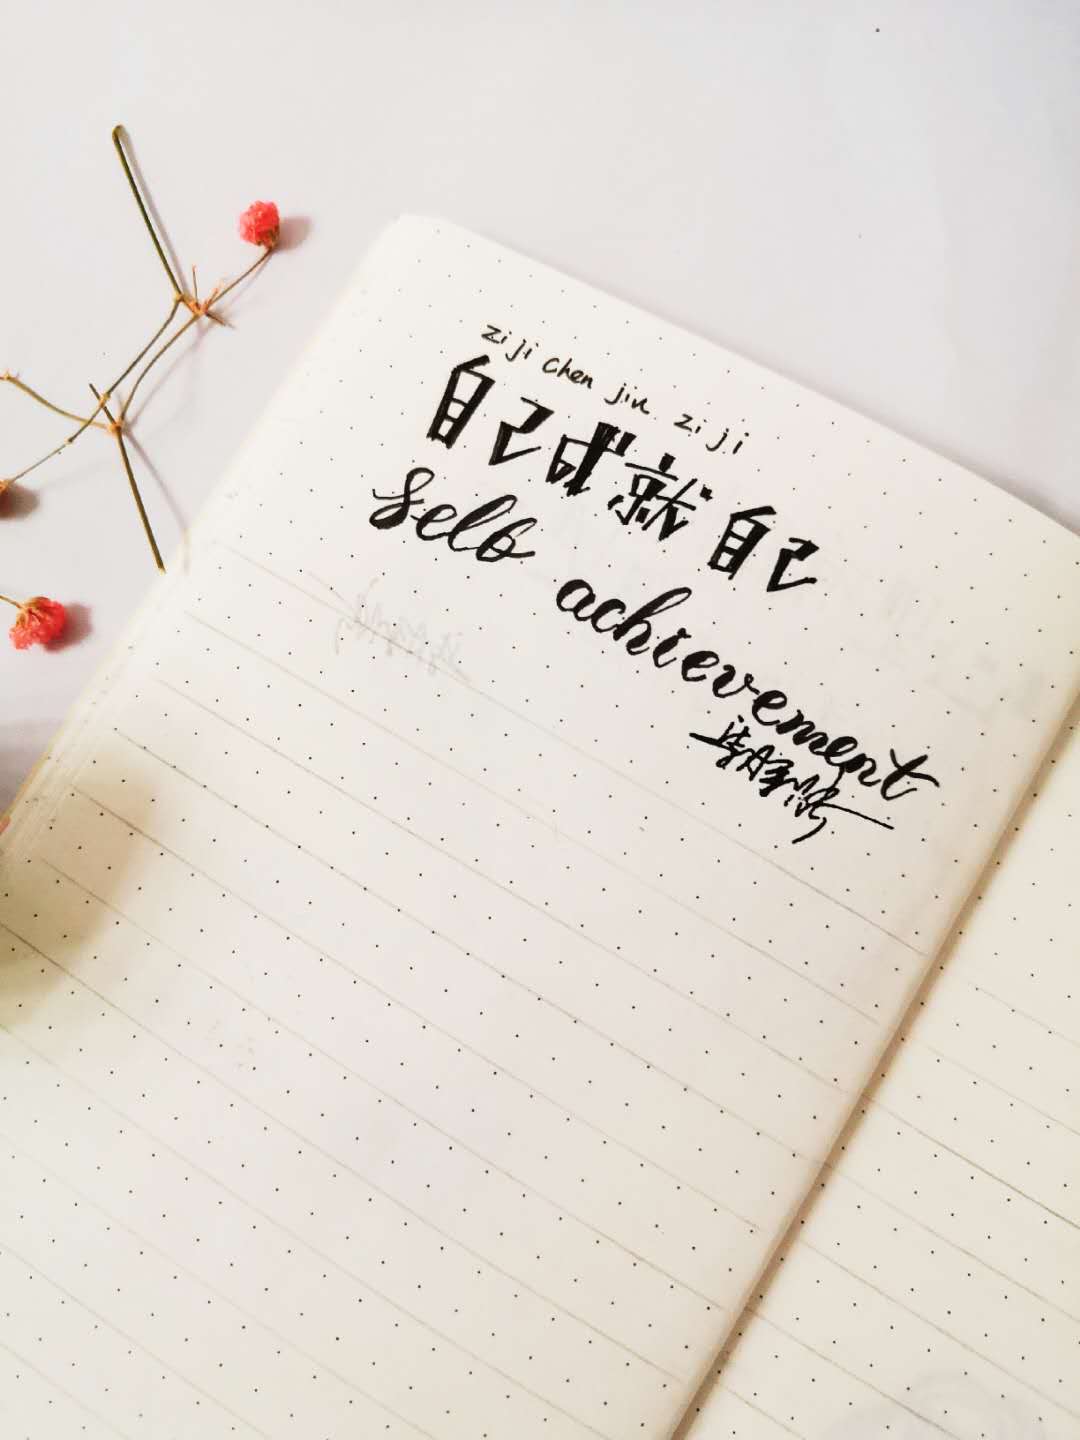 zi ji chen jiu zi ji
自己成就自己
self achievement